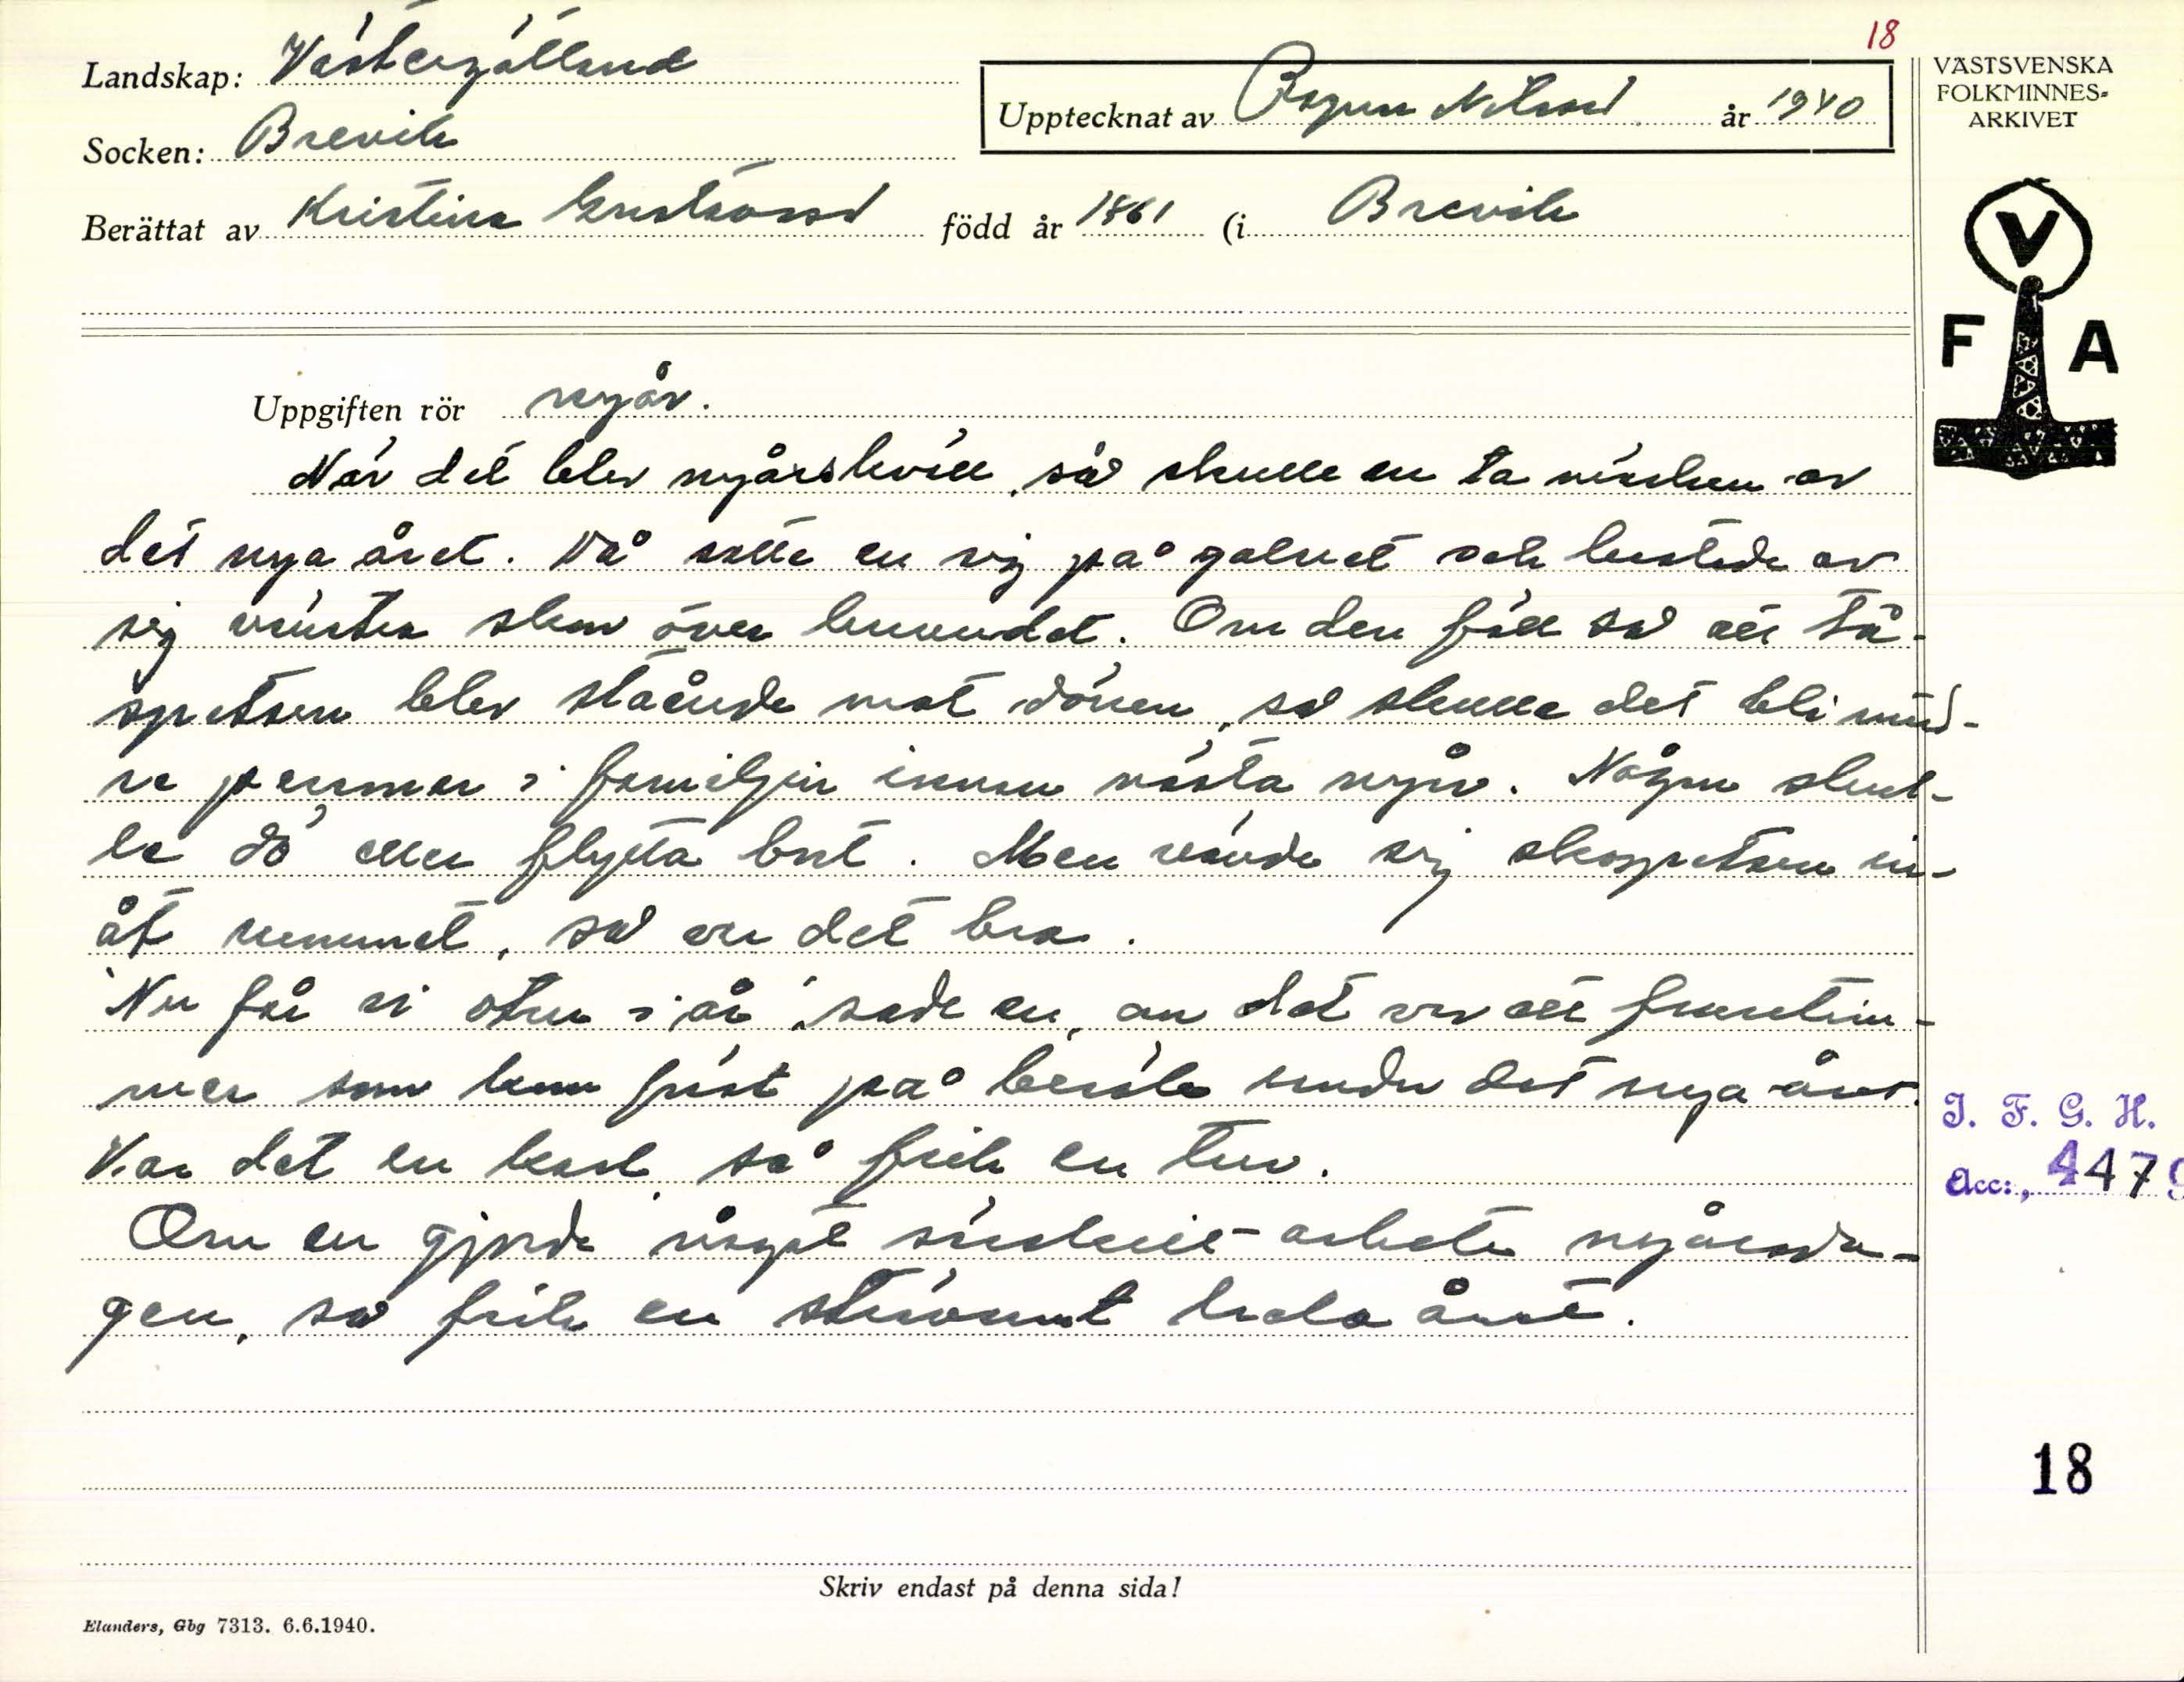 18
Landskap: Västergötland
VÄSTSVENSKA
FOLKMINNES-
ARKIVET
Upptecknat av Ragnar Nilsson år 1940
Socken: Brevik
Berättat av Kristina Gustavsson född år 1861 (i Brevik
V
F A
Uppgiften rör nyår.
När det blev nyårskväll, så skulle en ta märken av
det nya året. Då satte en sig på golvet och kastade av
sig vänster sko över huvudet. Om den föll så att tå-
spetsen blev stående mot dörren, så skulle det bli mind-
re personer i familjen innan nästa nyår. Någon skul-
le dö eller flytta bort. Men vände sig skospetsen in-
åt rummet, så var det bra.
"Nu får vi otur i år", sade en, om det var ett fruntim-
mer som kom först på besök under det nya året.
Var det en karl, så fick en tur.
Om en gjorde något arbete nyårsda-
gen, så fick en strävsamt hela året.
I. F. G. H.
Acc:, 4479
18
Skriv endast på denna sida!
Elanders, Gbg 7313. 6.6.1940.